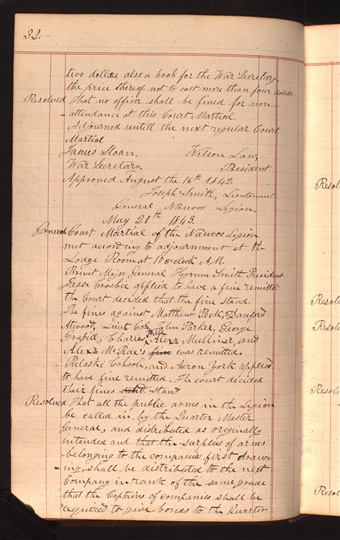 32.
two dollars, also a book for the War Secretary,
the price thereof not to cost more than four dollars
Resolved That no officer shall be fined for non-
attendance at this Court Martial.
Adjourned untill the next regular Court
Martial
James Sloan, Wilson Law,
War Secretary. President
Approved August the 16th 1842.
Joseph Smith, Lieutenant
General, Nauvoo Legion.
May 20th 1843.
General Court Martial of the Nauvoo Legion
met according to adjournment at the
Lodge Room at 10 oclock A.M.
Brevet Major General Hyrum Smith President
Jesse Crosbie applied to have a fine remitted
the Court decided that the fine stand.
The fines against Matthew Peck, Danford
Atwood, Lieut Col John Parker, George
Grubill, Charles Alexr Mulliner, and
Alexr McRae's fine was remitted.
Pulaski Cahoon, and Aaron York applied
to have fine remitted, the court decided
their fines stand
Resolved That all the public arms in the Legion
be called in by the Quarter Master
General, and distributed as originally
intended and that the surplus of arms
belonging to the companies first draw-
ing, shall be distributed to the next
Company in rank of the same grade
that the Captains of companies shall be
required to give bonds to the Quarter
Resolv
Resolv
Resolv
Resolv